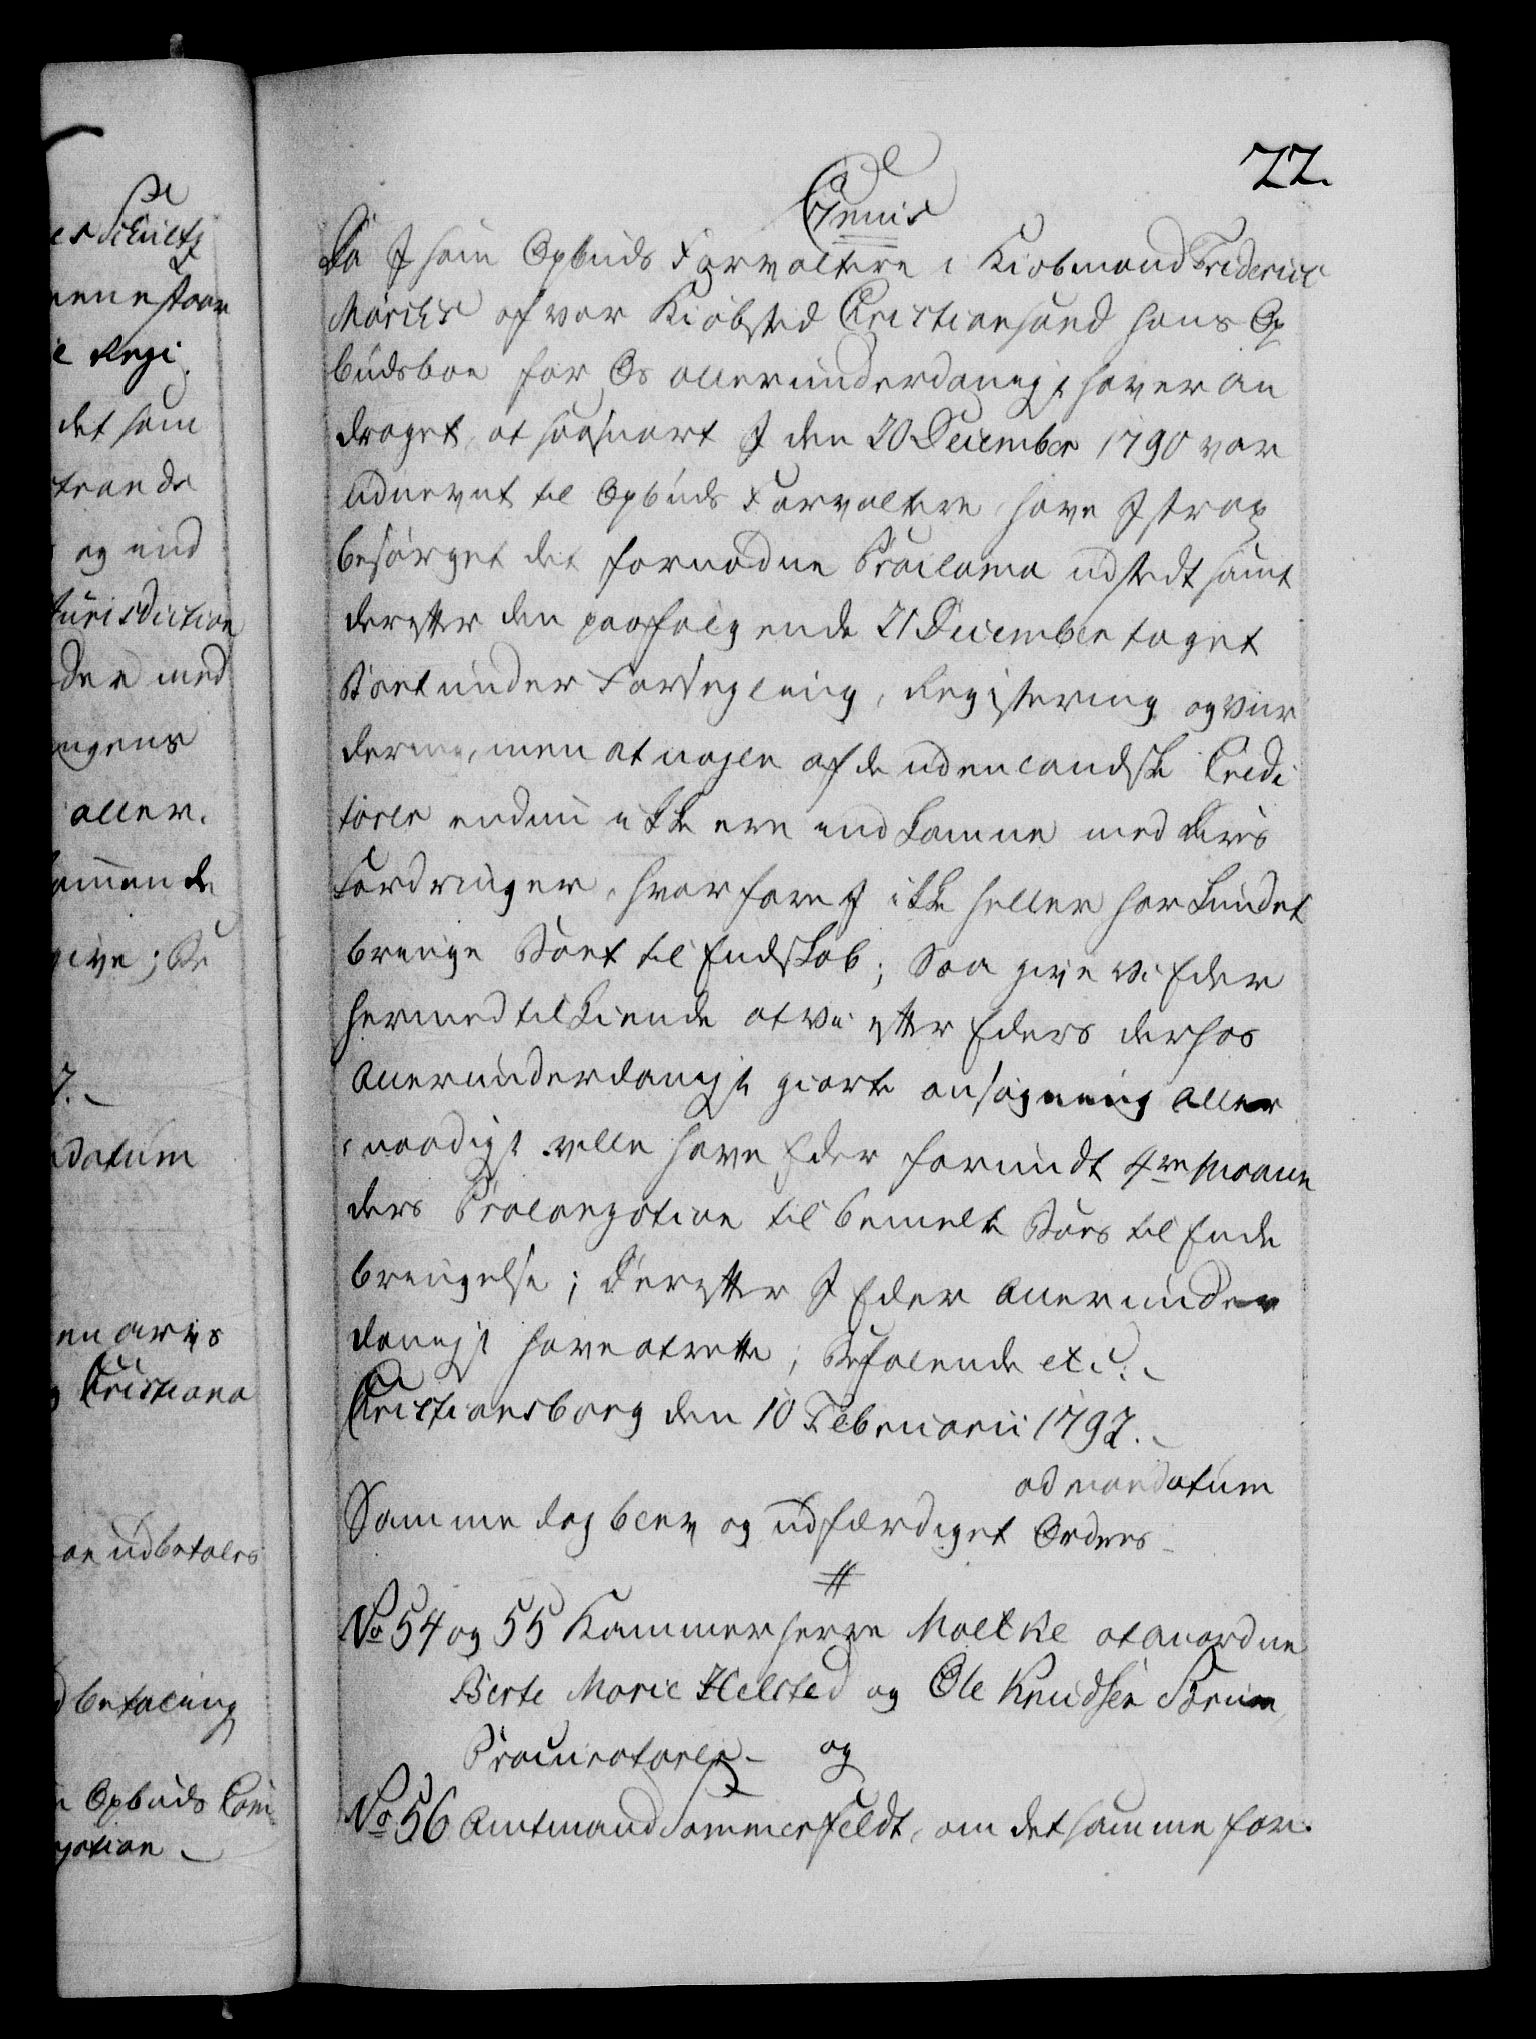 22.
Genus
Da I som Opbuds Forvaltere i Kiøbmand Friderich
Mørchs af vor Kiøbsted Christiansand hans Op
budsboe for Os allerunderdanigst haver an
draget, at saasnart I den 20 December 1790 var
udnevnt til Opbuds Forvaltere, have I strax
besørget det fornødne Proclama udstedt samt
derefter den paafølgende 21 December taget
Boet under Forsegling, Registering og Vur
dering, men at nogle af de udenlandske Credi
torer endnu ikke ere indkomne med deres
Fordringer, hvorfore I ikke heller har kundet
bringe Boet til Endskab; Saa give Vi Eder
hermed tilkiende at Vi efter Eders derhos
allerunderdanigst giorte ansøgning aller
naadigst ville have Eder forundt 4re Maane
ders Prolongation til bemelte Boes til Ende
bringelse; Derefter I Eder allerunder
danigst have at rette; Befalende etc.
Christiansborg den 10 Februarii 1792.
ad mandatum
Samme dag blev og udfærdiget Ordres
#
No 54 og 55 Kammerherre Moltke at anordne
Berte Marie Helsted og Ole Knudsen Sørum
Procuratorer og
No 56 Amtmand Sommerfeldt, om det samme for
es Schultz
staar
Regi
det som
og ind
Jurisdiction
der med
ingens
aller.
7.
datum
Christiana
udbetales
betaling
Opbuds Com
gation